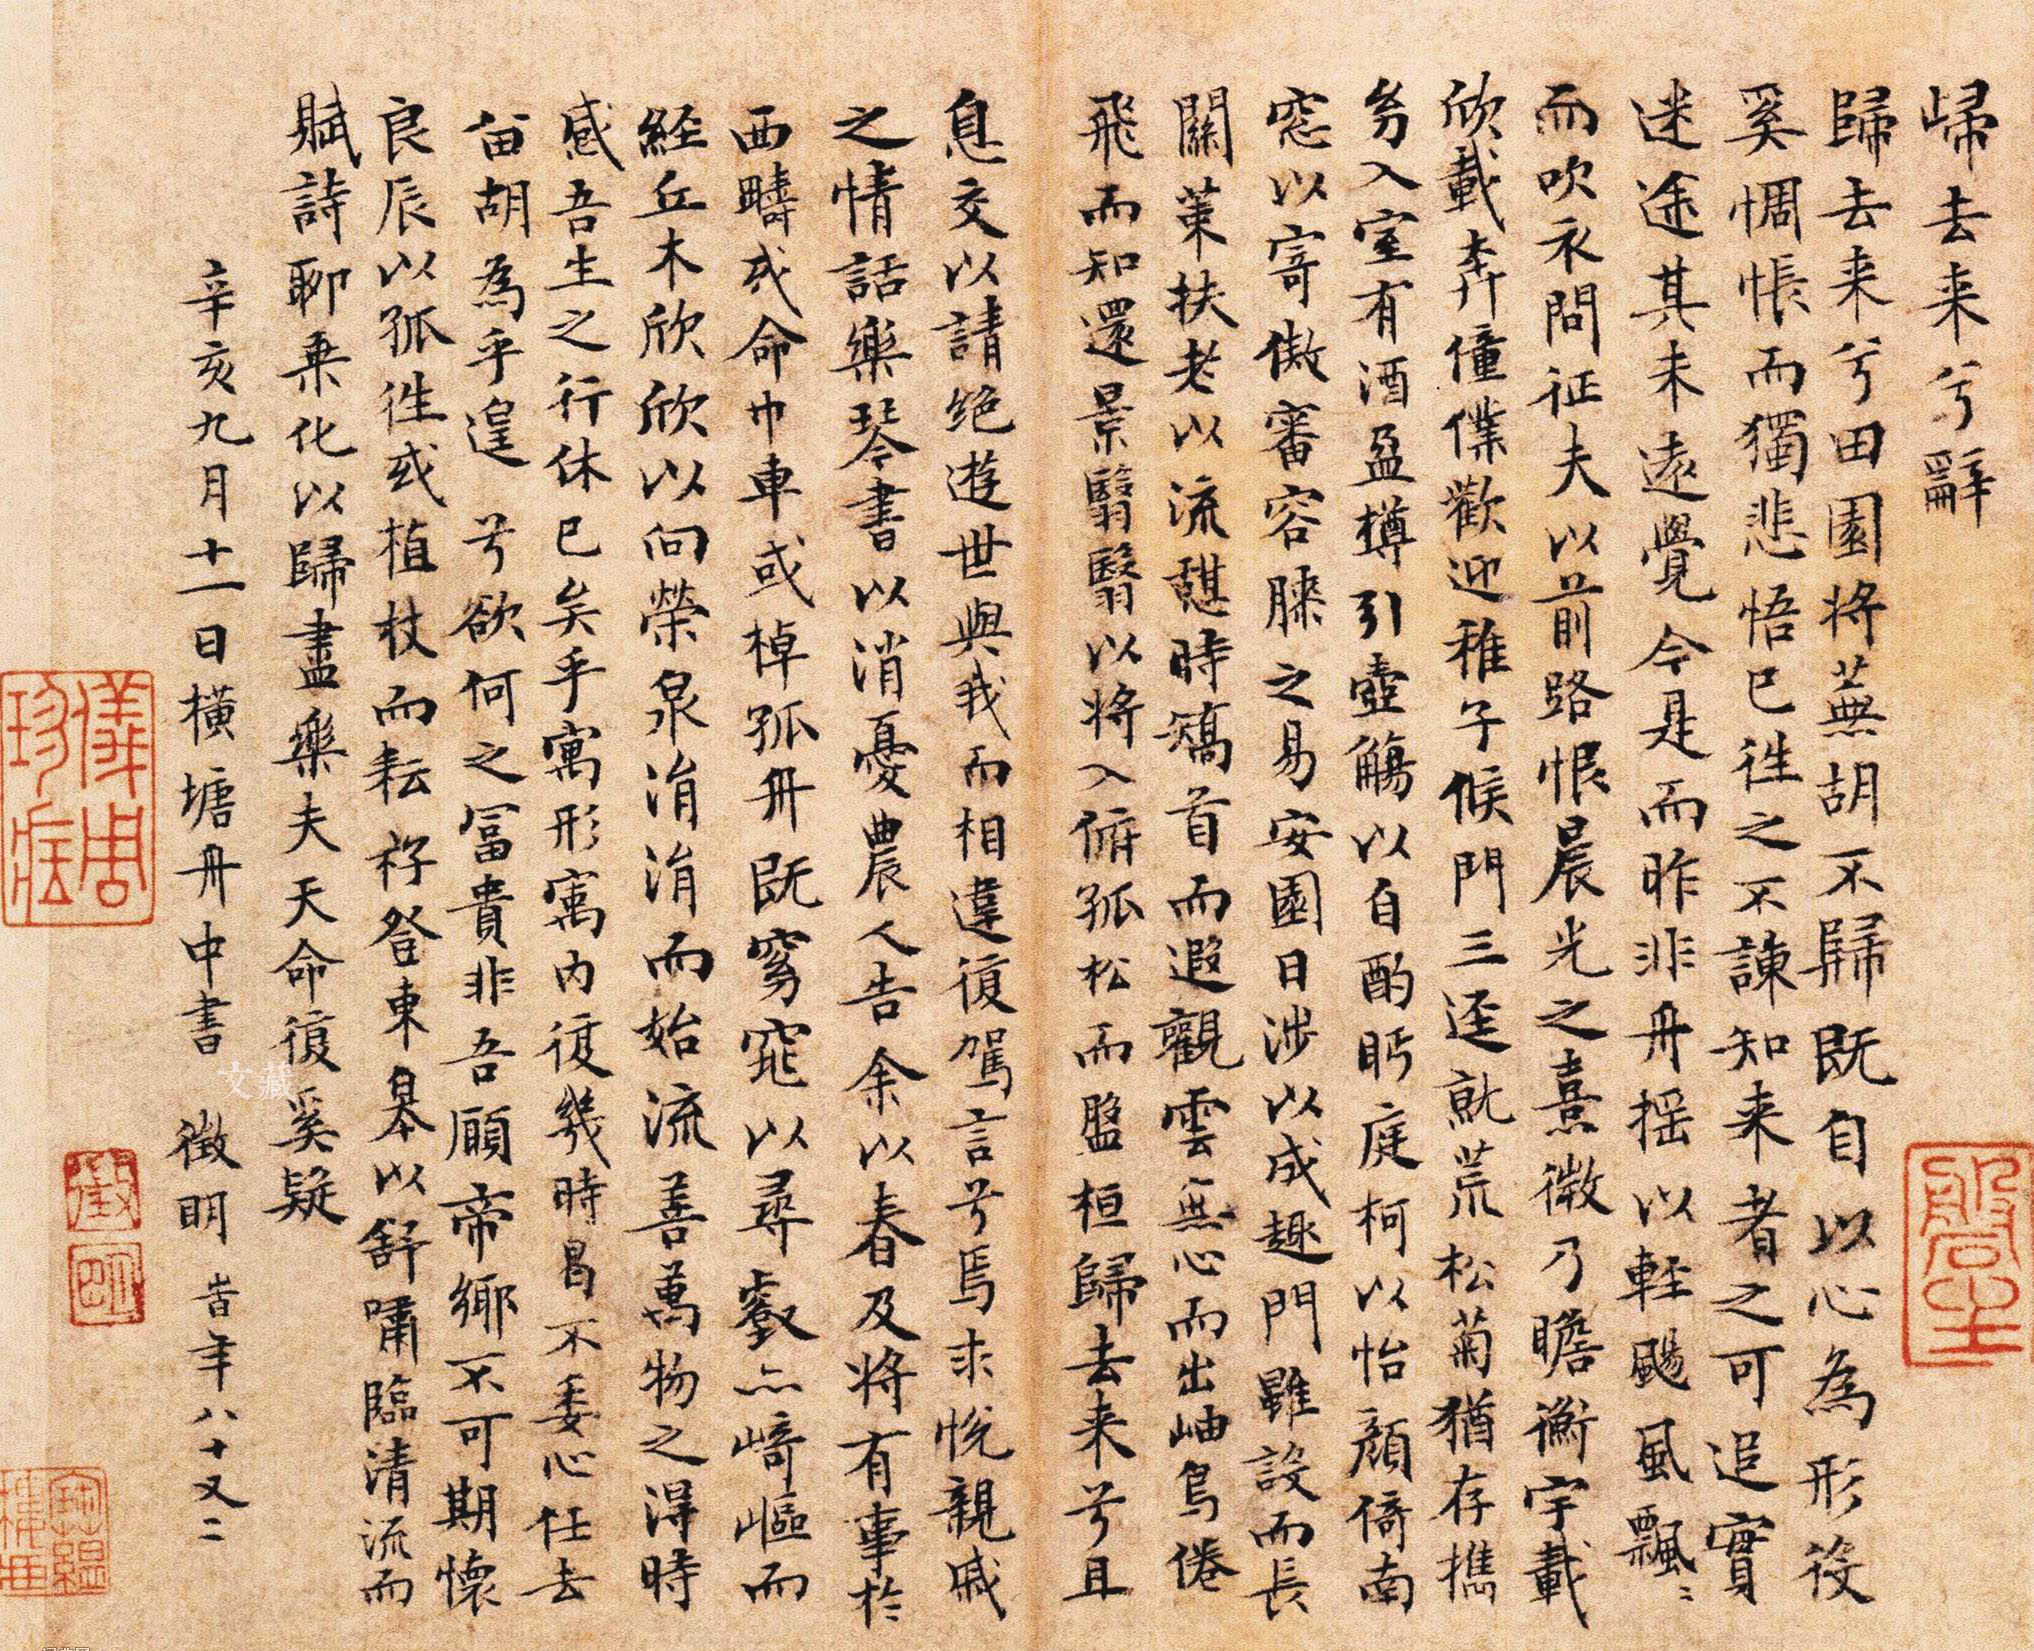 歸去来兮辭
歸去来兮田園将蕪胡不歸既自以心為形役
奚惆悵而獨悲悟已往之不諫知来者之可追實
迷途其未遠覺今是而昨非舟揺以軽颺風飄〻
而吹衣問征夫以前路恨晨光之熹微乃瞻衡宇載
欣載奔僮僕歡迎稚子候門三逕就荒松菊猶存攜
㓜入室有酒盈樽引壺觴以自酌眄庭柯以怡顔倚南
窓以寄傲審容膝之易安園日涉以成趣門雖設而長
關策扶老以流憇時矯首而遐觀雲無心而出岫鳥倦
飛而知還景翳翳以将入俯孤松而盤桓歸去来兮且
息交以請絶遊世與我而相違復駕言兮焉求悦親戚
之情話樂琴書以消憂農人告余以春及将有事於
西疇或命巾車或棹孤舟既窈窕以尋壑亦崎嶇而
経丘木欣欣以向榮泉涓涓而始流善萬物之得時
感吾生之行休已矣乎寓形寓内復幾時曷不委心任去
留胡為乎遑兮欲何之冨貴非吾願帝鄉不可期懐
良辰以孤往或植杖而耘耔登東皋以舒嘯臨清流而
賦詩聊乗化以歸盡樂夫天命復奚疑
辛亥九月十一日横塘舟中書 徵明 峕年八十又二
文藏
徵
明
儀周珍藏